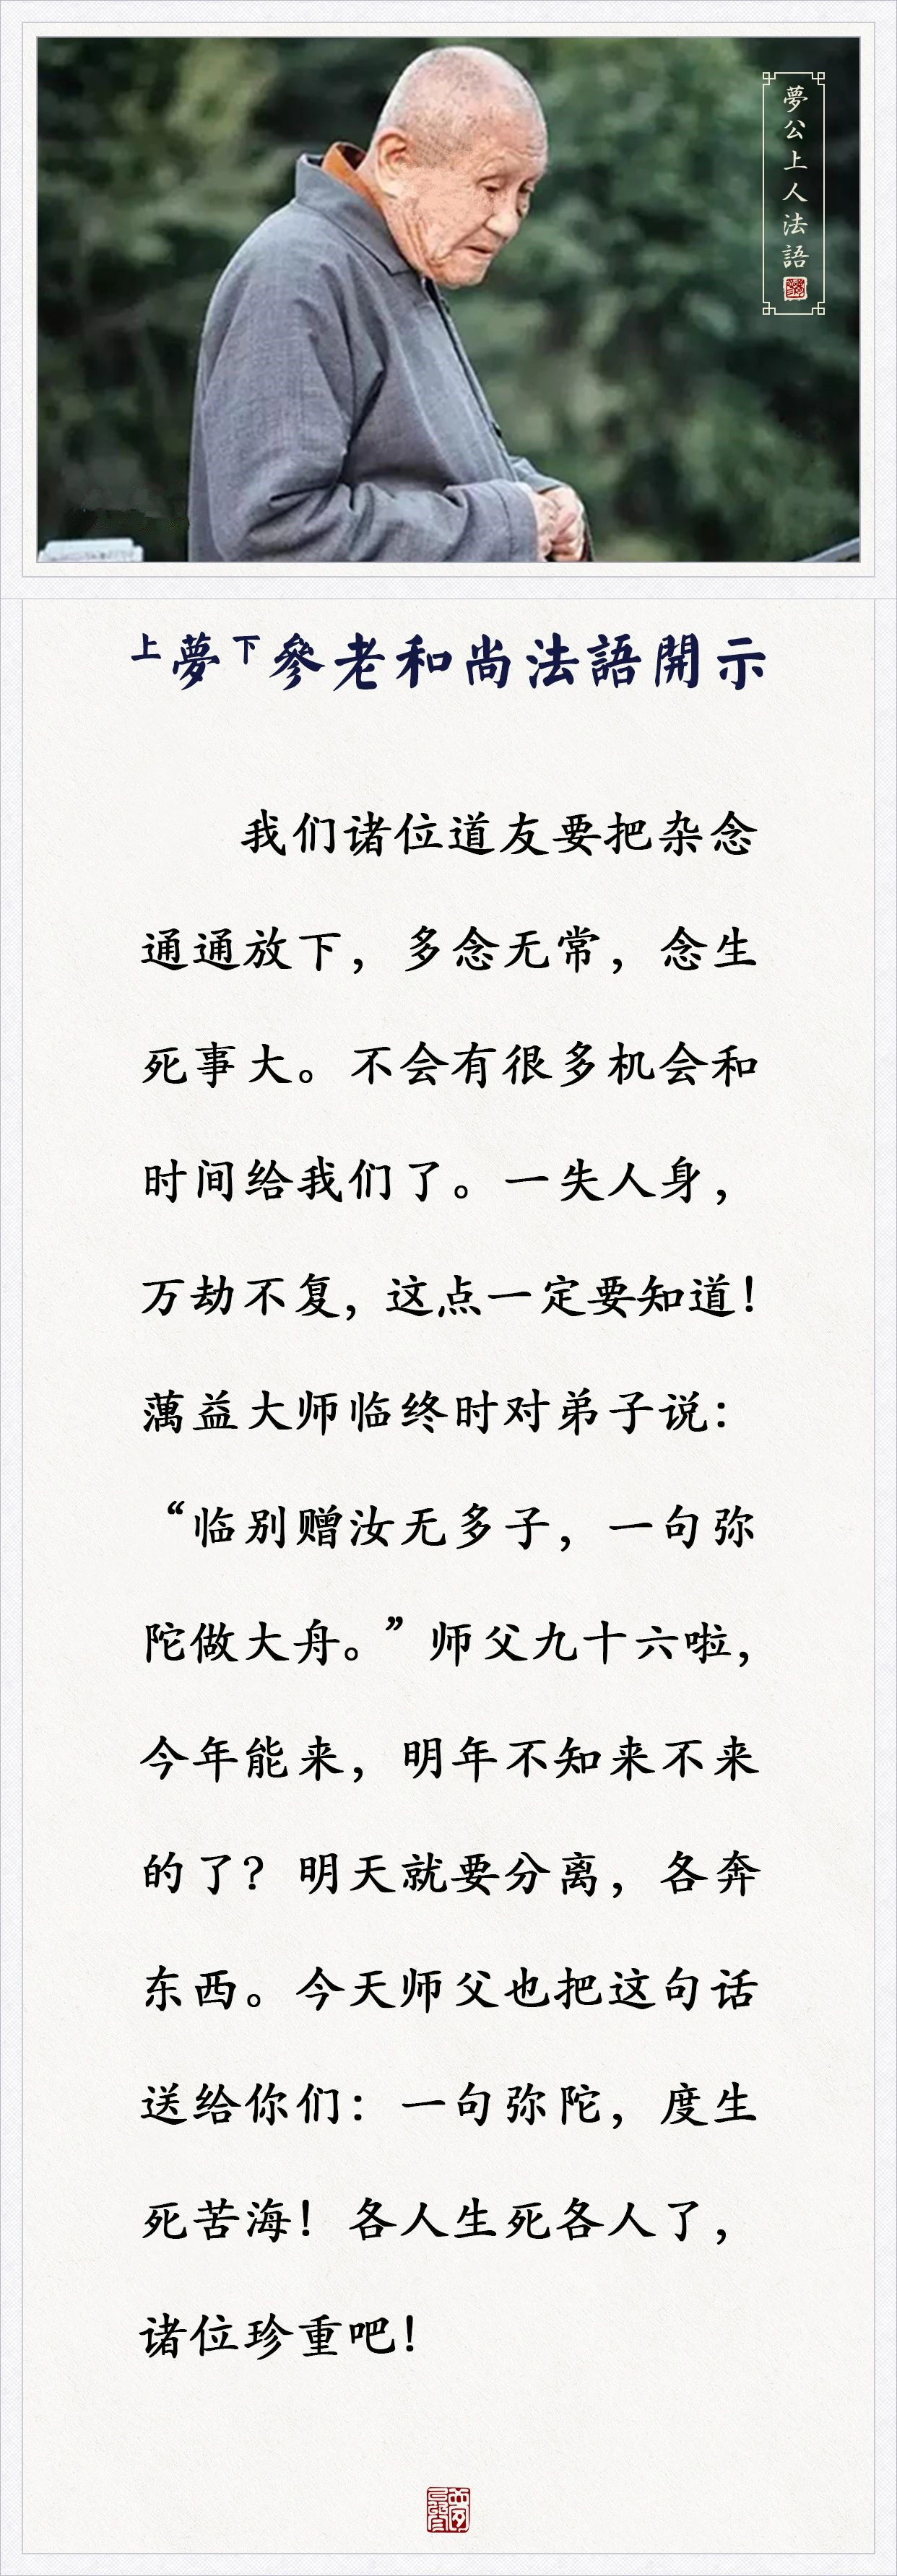 夢公上人法語
上夢下參老和尚法語開示
我们诸位道友要把杂念
通通放下，多念无常，念生
死事大。不会有很多机会和
时间给我们了。一失人身，
万劫不复，这点一定要知道！
蕅益大师临终时对弟子说：
“临别赠汝无多子，一句弥
陀做大舟。”师父九十六啦，
今年能来，明年不知来不来
的了？明天就要分离，各奔
东西。今天师父也把这句话
送给你们：一句弥陀，度生
死苦海！各人生死各人了，
诸位珍重吧！